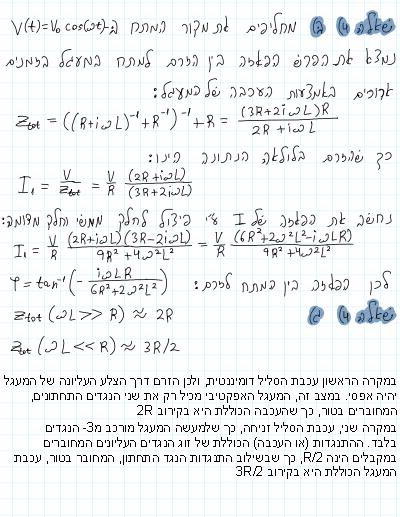 שאלה 4) ב) מחליפים את מקור המתח ב- V(t)=V₀cos(ωt)
נמצא את הפרש הפאזה בין הזרם למתח המעגל בזמנים
ארוכים באמצעות העכבה של המעגל:
Z_tot = ((R+iωL)⁻¹+R⁻¹)⁻¹+R = (3R+2iωL)R / (2R+iωL)
כך שהזרם בלולאה הנתונה הינו:
I₁ = V/Z_tot = V/R (2R+iωL)/(3R+2iωL)
נחשב את הפאזה של I ע"י פיצול לחלק ממשי וחלק מדומה:
I₁ = V/R (2R+iωL)(3R-2iωL)/(9R²+4ω²L²) = V/R (6R²+2ω²L²-iωLR)/(9R²+4ω²L²)
לכן הפאזה בין המתח לזרם: φ = tan⁻¹(- iωLR/(6R²+2ω²L²))
שאלה 4) ג) Z_tot (ωL>>R) ≈ 2R
Z_tot (ωL<<R) ≈ 3R/2
במקרה הראשון עכבת הסליל דומיננטית, ולכן הזרם דרך הצלע העליונה של המעגל
יהיה אפסי. במצב זה, המעגל האפקטיבי מכיל רק את שני הנגדים התחתונים,
המחוברים בטור, כך שהעכבה הכוללת היא בקירוב 2R
במקרה שני, עכבת הסליל זניחה, כך שלמעשה המעגל מורכב מ3- הנגדים
בלבד. ההתנגדות (או העכבה) הכוללת של זוג הנגדים העליונים המחוברים
במקבלים הינה R/2, כך שבשילוב התנגדות הנגד התחתון, המחובר בטור, עכבת
המעגל הכוללת היא בקירוב 3R/2